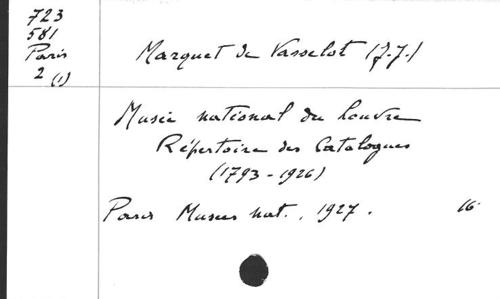 723
581
Paris
2 (1)
Marquet de Vasselot (J.J.)
Musée national du Louvre
Répertoire des Catalogues
(1793-1926)
Paris Musées nat., 1927. 16